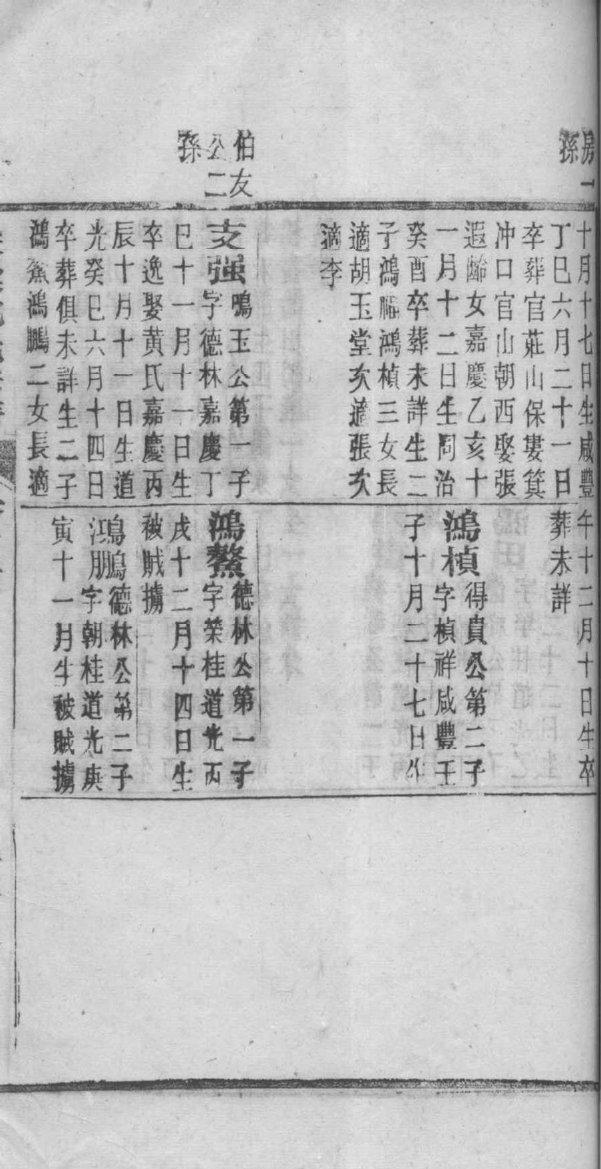 房一
孫
伯友
公二
孫
十月十七日生咸豐
丁巳六月二十一日
卒葬官莊山保婁箕
冲口官山朝西娶張
遐齡女嘉慶乙亥十
一月十二日生同治
癸酉卒葬未詳生二
子鴻福鴻楨三女長
適胡玉堂次適張次
適李
支强鳴玉公第一子
字德林嘉慶丁
巳十一月十一日生
卒逸娶黄氏嘉慶丙
辰十月十一日生道
光癸巳六月十四日
卒葬俱未詳生二子
鴻鰲鴻鵬二女長適
年十二月十日生卒
葬未詳
鴻楨得貴公第二子
字楨祥咸豐壬
子十月二十七日生
鴻鰲德林公第一子
字榮桂道光丙
戌十二月十四日生
被賊擄
鴻鵬德林公第二子
字朝桂道光庚
寅十一月生被賊擄